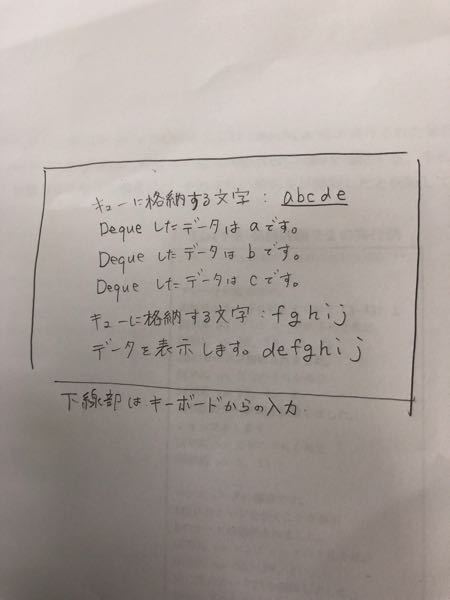 キューに格納する文字：abcde
Deque したデータは a です。
Deque したデータは b です。
Deque したデータは c です。
キューに格納する文字：fghij
データを表示します。defghij
下線部はキーボードからの入力